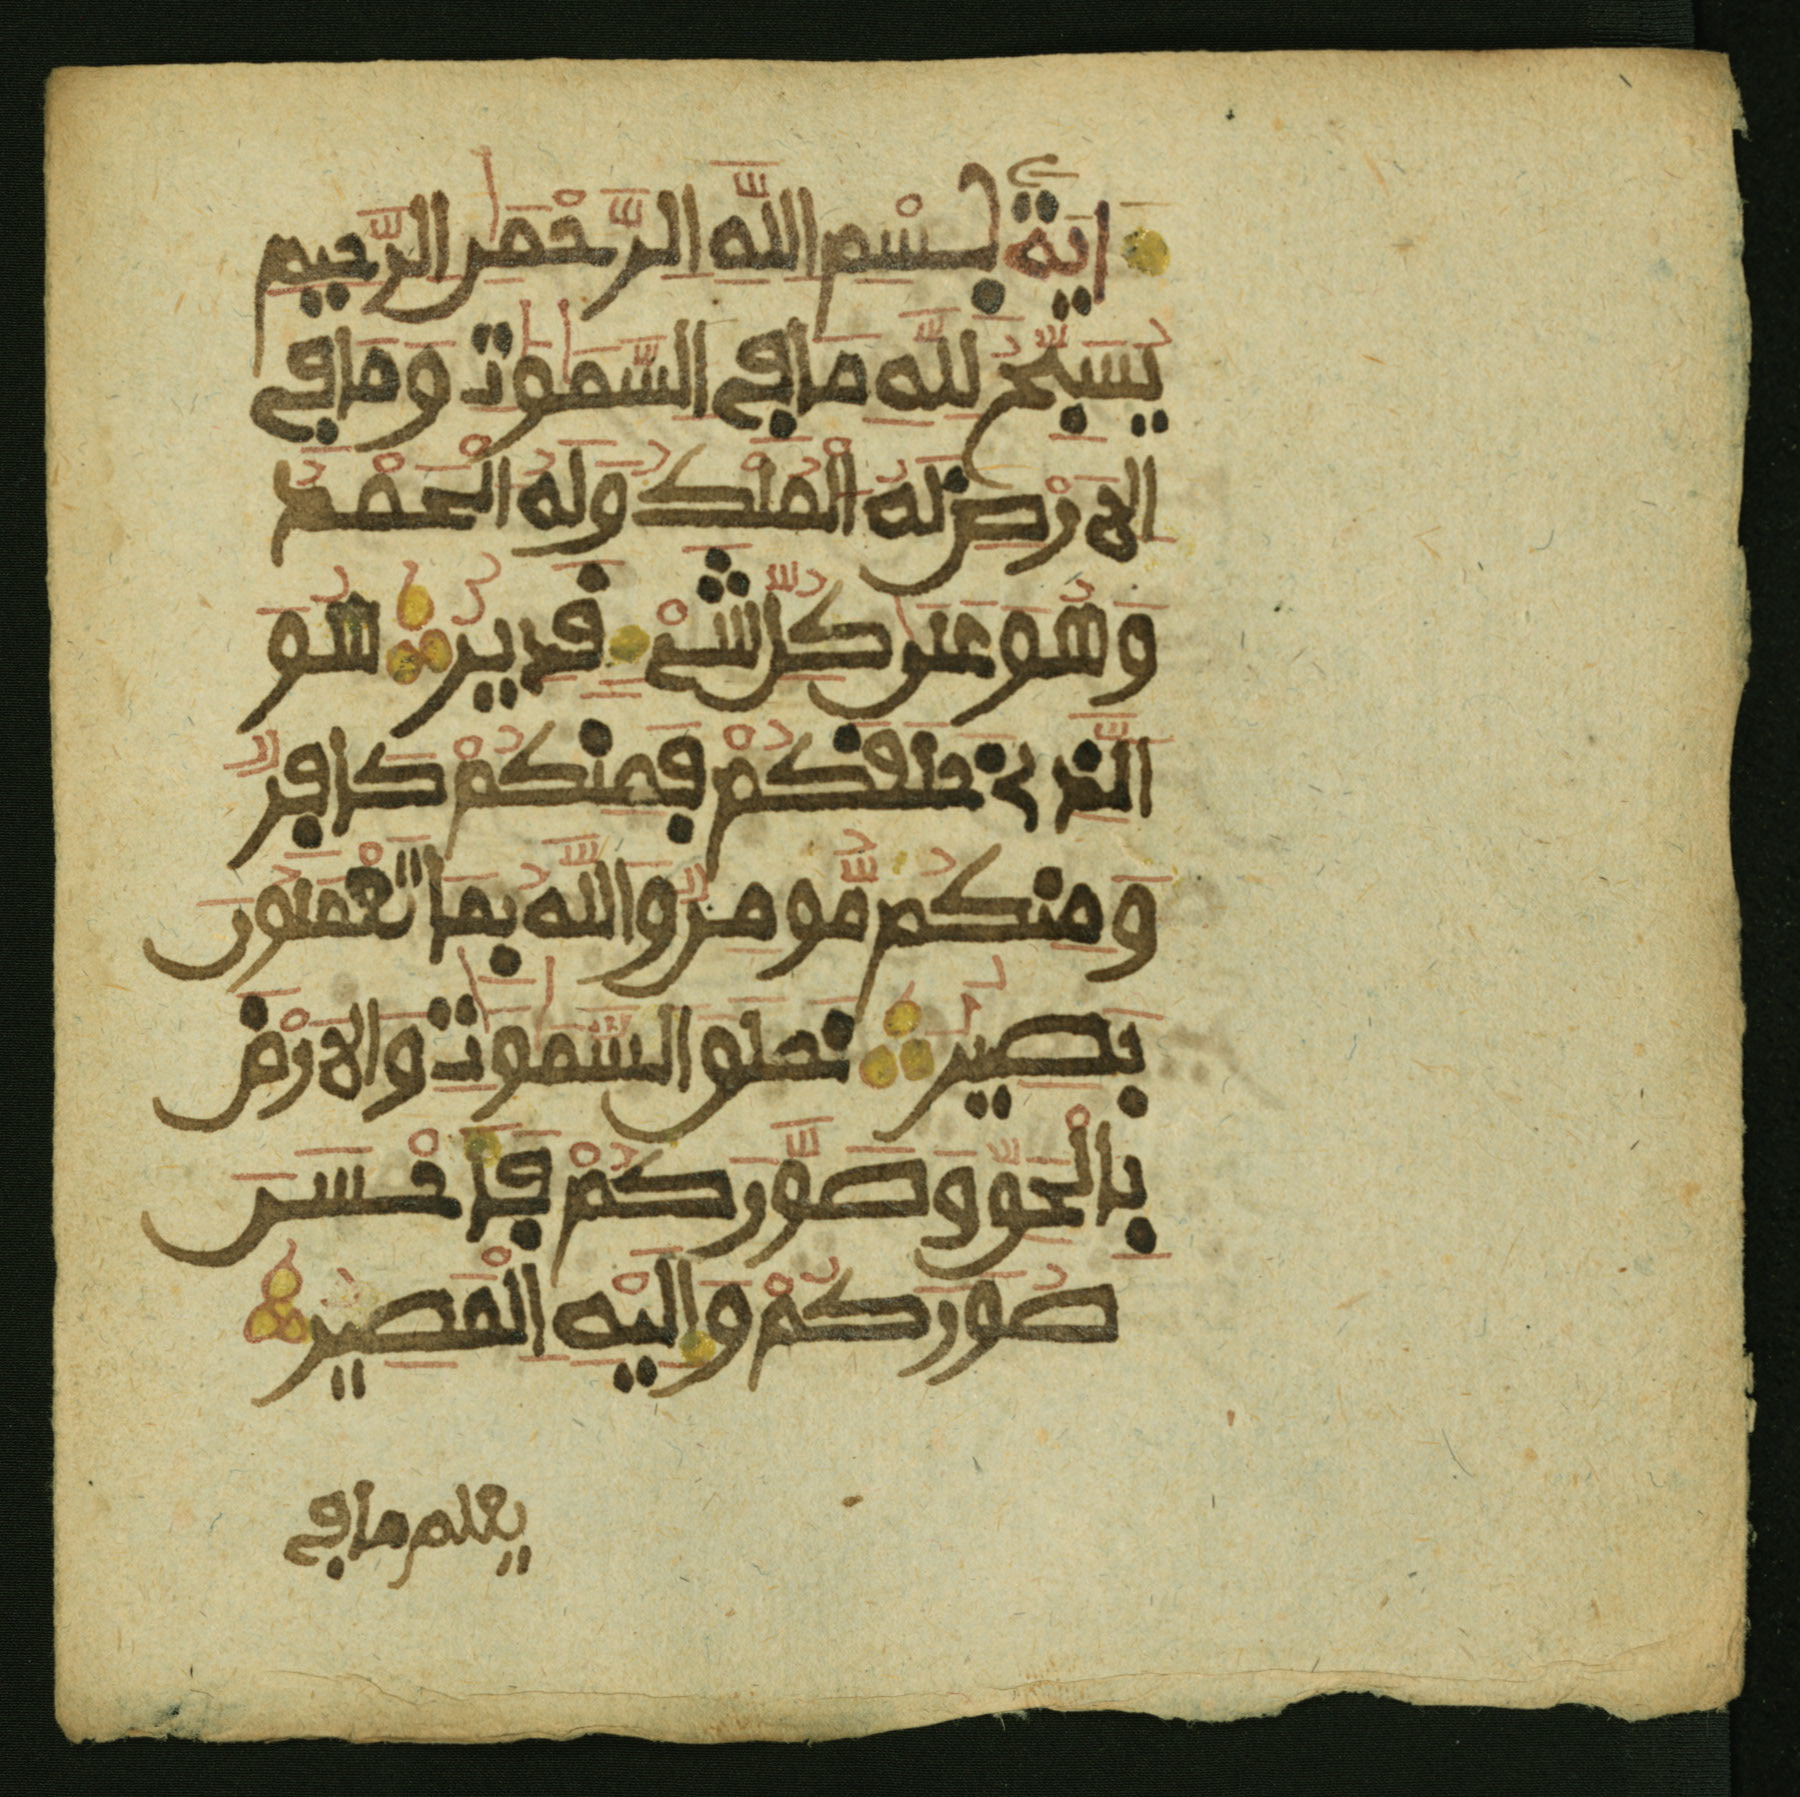 اية بِسْمِ اللَّهِ الرَّحْمَٰنِ الرَّحِيمِ
يُسَبِّحُ لِلَّهِ مَا فِي السَّمَٰوَٰتِ وَمَا فِي
الَارْضِ لَهُ الْمُلْكُ وَلَهُ الْحَمْدُ
وَهُوَ عَلَىٰ كُلِّ شَيْءٍ قَدِيرٌ هُوَ
الَّذِي خَلَقَكُمْ فَمِنكُمْ كَافِرٌ
وَمِنكُم مُّومِنٌ وَاللَّهُ بِمَا تَعْمَلُونَ
بَصِيرٌ خَلَقَ السَّمَٰوَٰتِ وَالَارْضَ
بِالْحَقِّ وَصَوَّرَكُمْ فَأَحْسَنَ
صُوَرَكُمْ وَإِلَيْهِ الْمَصِيرُ
يعلم ما في